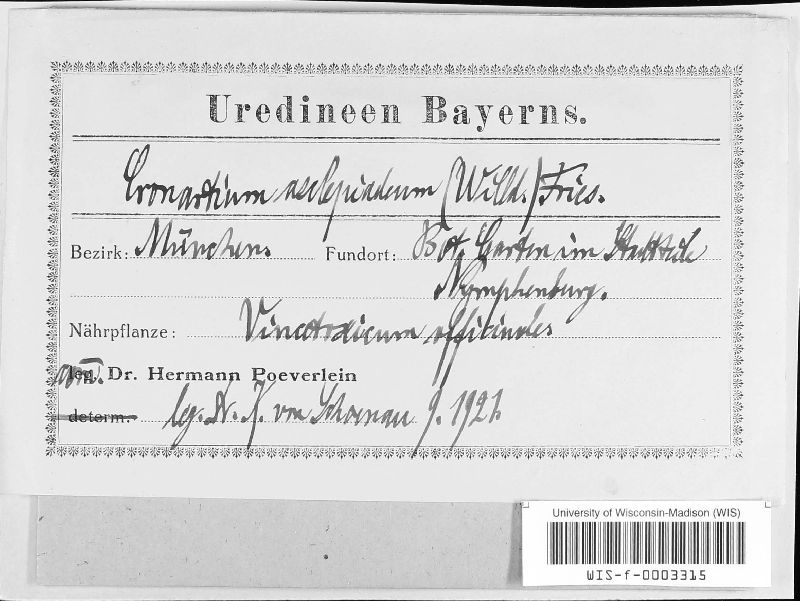 Uredineen Bayerns.
Cronartium asclepiadeum (Willd.) Fries.
Bezirk: München. Fundort: Bot. Garten im Stadtteile
Nymphenburg.
Nährpflanze: Vincetoxicum officinale.
com. Dr. Hermann Poeverlein
determ. leg. Dr. K. von Schoenau 9. 1921.
University of Wisconsin-Madison (WIS)
WIS-f-0003315